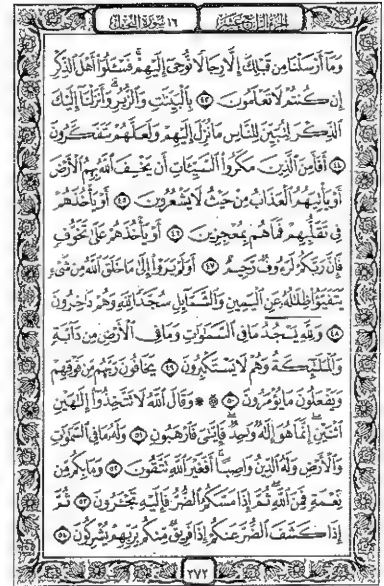 الجزء الرابع عشر ١٦ سورة النحل
وَمَآ أَرْسَلْنَا مِن قَبْلِكَ إِلَّا رِجَالًا نُّوحِىٓ إِلَيْهِمْ ۚ فَسْـَٔلُوٓا۟ أَهْلَ ٱلذِّكْرِ
إِن كُنتُمْ لَا تَعْلَمُونَ ٤٣ بِٱلْبَيِّنَٰتِ وَٱلزُّبُرِ ۗ وَأَنزَلْنَآ إِلَيْكَ
ٱلذِّكْرَ لِتُبَيِّنَ لِلنَّاسِ مَا نُزِّلَ إِلَيْهِمْ وَلَعَلَّهُمْ يَتَفَكَّرُونَ
٤٤ أَفَأَمِنَ ٱلَّذِينَ مَكَرُوا۟ ٱلسَّيِّـَٔاتِ أَن يَخْسِفَ ٱللَّهُ بِهِمُ ٱلْأَرْضَ
أَوْ يَأْتِيَهُمُ ٱلْعَذَابُ مِنْ حَيْثُ لَا يَشْعُرُونَ ٤٥ أَوْ يَأْخُذَهُمْ
فِى تَقَلُّبِهِمْ فَمَا هُم بِمُعْجِزِينَ ٤٦ أَوْ يَأْخُذَهُمْ عَلَىٰ تَخَوُّفٍ
فَإِنَّ رَبَّكُمْ لَرَءُوفٌ رَّحِيمٌ ٤٧ أَوَلَمْ يَرَوْا۟ إِلَىٰ مَا خَلَقَ ٱللَّهُ مِن شَىْءٍ
يَتَفَيَّؤُا۟ ظِلَٰلُهُۥ عَنِ ٱلْيَمِينِ وَٱلشَّمَآئِلِ سُجَّدًا لِّلَّهِ وَهُمْ دَٰخِرُونَ
٤٨ وَلِلَّهِ يَسْجُدُ مَا فِى ٱلسَّمَٰوَٰتِ وَمَا فِى ٱلْأَرْضِ مِن دَآبَّةٍ
وَٱلْمَلَٰٓئِكَةُ وَهُمْ لَا يَسْتَكْبِرُونَ ٤٩ يَخَافُونَ رَبَّهُم مِّن فَوْقِهِمْ
وَيَفْعَلُونَ مَا يُؤْمَرُونَ ۩ ٥٠ ۞ وَقَالَ ٱللَّهُ لَا تَتَّخِذُوٓا۟ إِلَٰهَيْنِ
ٱثْنَيْنِ ۖ إِنَّمَا هُوَ إِلَٰهٌ وَٰحِدٌ ۖ فَإِيَّٰىَ فَٱرْهَبُونِ ٥١ وَلَهُۥ مَا فِى ٱلسَّمَٰوَٰتِ
وَٱلْأَرْضِ وَلَهُ ٱلدِّينُ وَاصِبًا ۚ أَفَغَيْرَ ٱللَّهِ تَتَّقُونَ ٥٢ وَمَا بِكُم مِّن
نِّعْمَةٍ فَمِنَ ٱللَّهِ ۖ ثُمَّ إِذَا مَسَّكُمُ ٱلضُّرُّ فَإِلَيْهِ تَجْـَٔرُونَ ٥٣ ثُمَّ
إِذَا كَشَفَ ٱلضُّرَّ عَنكُمْ إِذَا فَرِيقٌ مِّنكُم بِرَبِّهِمْ يُشْرِكُونَ ٥٤
٢٧٢